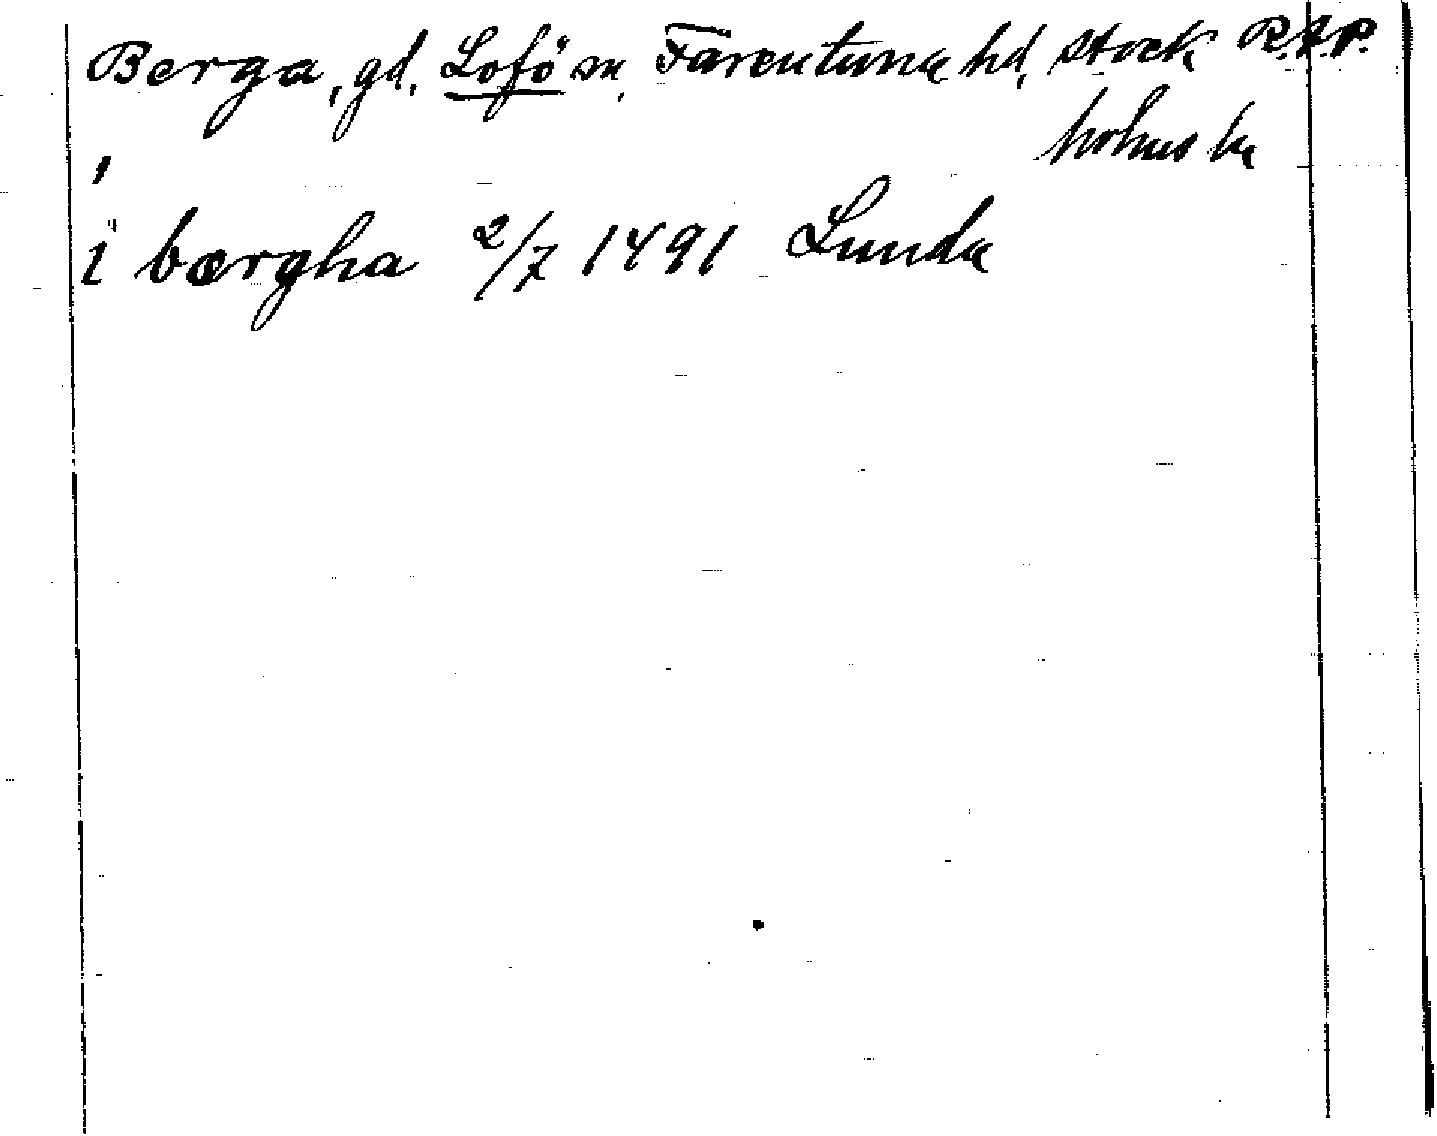 Berga, gd, Lofö sn, Färentuna hd, Stock R.A.P.
holms län
i bærgha 2/7 1491 Lunda